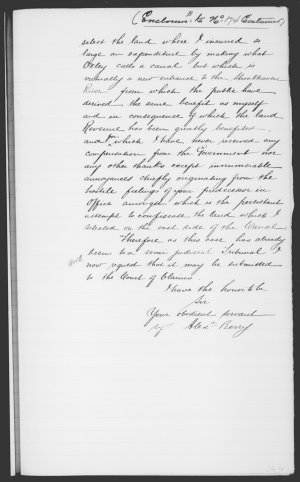 (Enclosure B to No 174 Continued)
select the land where I incurred so
large an expenditure by making what
Oxley calls a canal but which is
virtually a new entrance to the Shoalhaven
River from which the public have
derived the same benefit as myself
and in consequence of which the land
Revenue has been greatly benefited
and for which I have never received any
compensation from the Government nor
any other thanks except innumerable
annoyances chiefly originating from the
hostile feelings of your predecessor in
Office amongst which is the persistent
attempt to confiscate the land which I
selected on the east side of the Canal
Therefore as this case has already
been to a semi judicial Tribunal I
now request that it may be submitted
to the Court of Claims
I have the honor to be
Sir
Your obedient servant
Alexr Berry